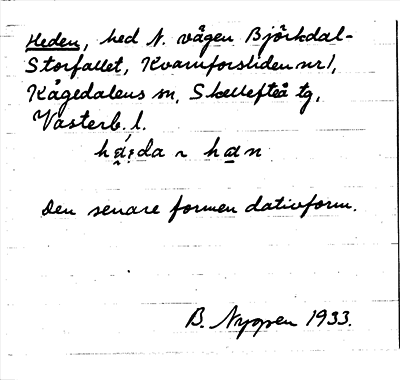 Heden, hed N. vägen Björkdal-
Storfallet, Kvarnforsliden nr 1,
Kågedalens sn, Skellefteå tg,
Västerb. l.
Den senare formen dativform.
B. Nygren 1933.